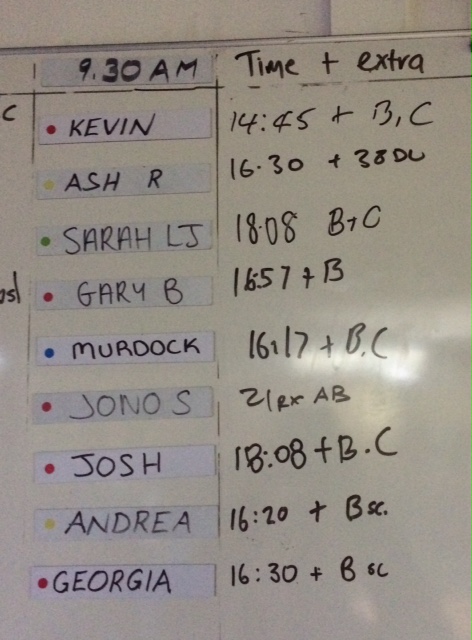 9.30 AM Time + extra
C
KEVIN 14:45 + B,C
ASH R 16.30 + 38DU
SARAH LJ 18:08 B+C
GARY B 16:57 + B
MURDOCK 16:17 + B.C
JONO S 21 RX AB
JOSH 18:08 + B.C
ANDREA 16:20 + B sc.
GEORGIA 16:30 + B sc